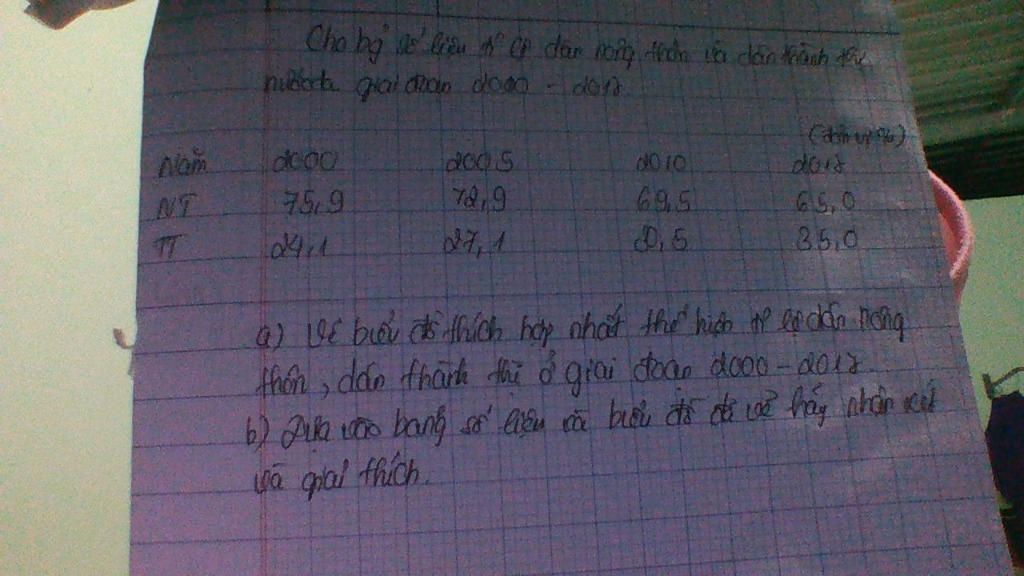 Cho bg số liệu tỉ lệ dân nông thôn và dân thành thị
nước ta giai đoạn 2000 - 2017
(đơn vị %)
Năm 2000 2005 2010 2017
NT 75,9 72,9 69,5 65,0
TT 24,1 27,1 30,5 35,0
a) Vẽ biểu đồ thích hợp nhất thể hiện tỉ lệ dân nông
thôn, dân thành thị ở giai đoạn 2000 - 2017.
b) Dựa vào bảng số liệu và biểu đồ đã vẽ hãy nhận xét
và giải thích.